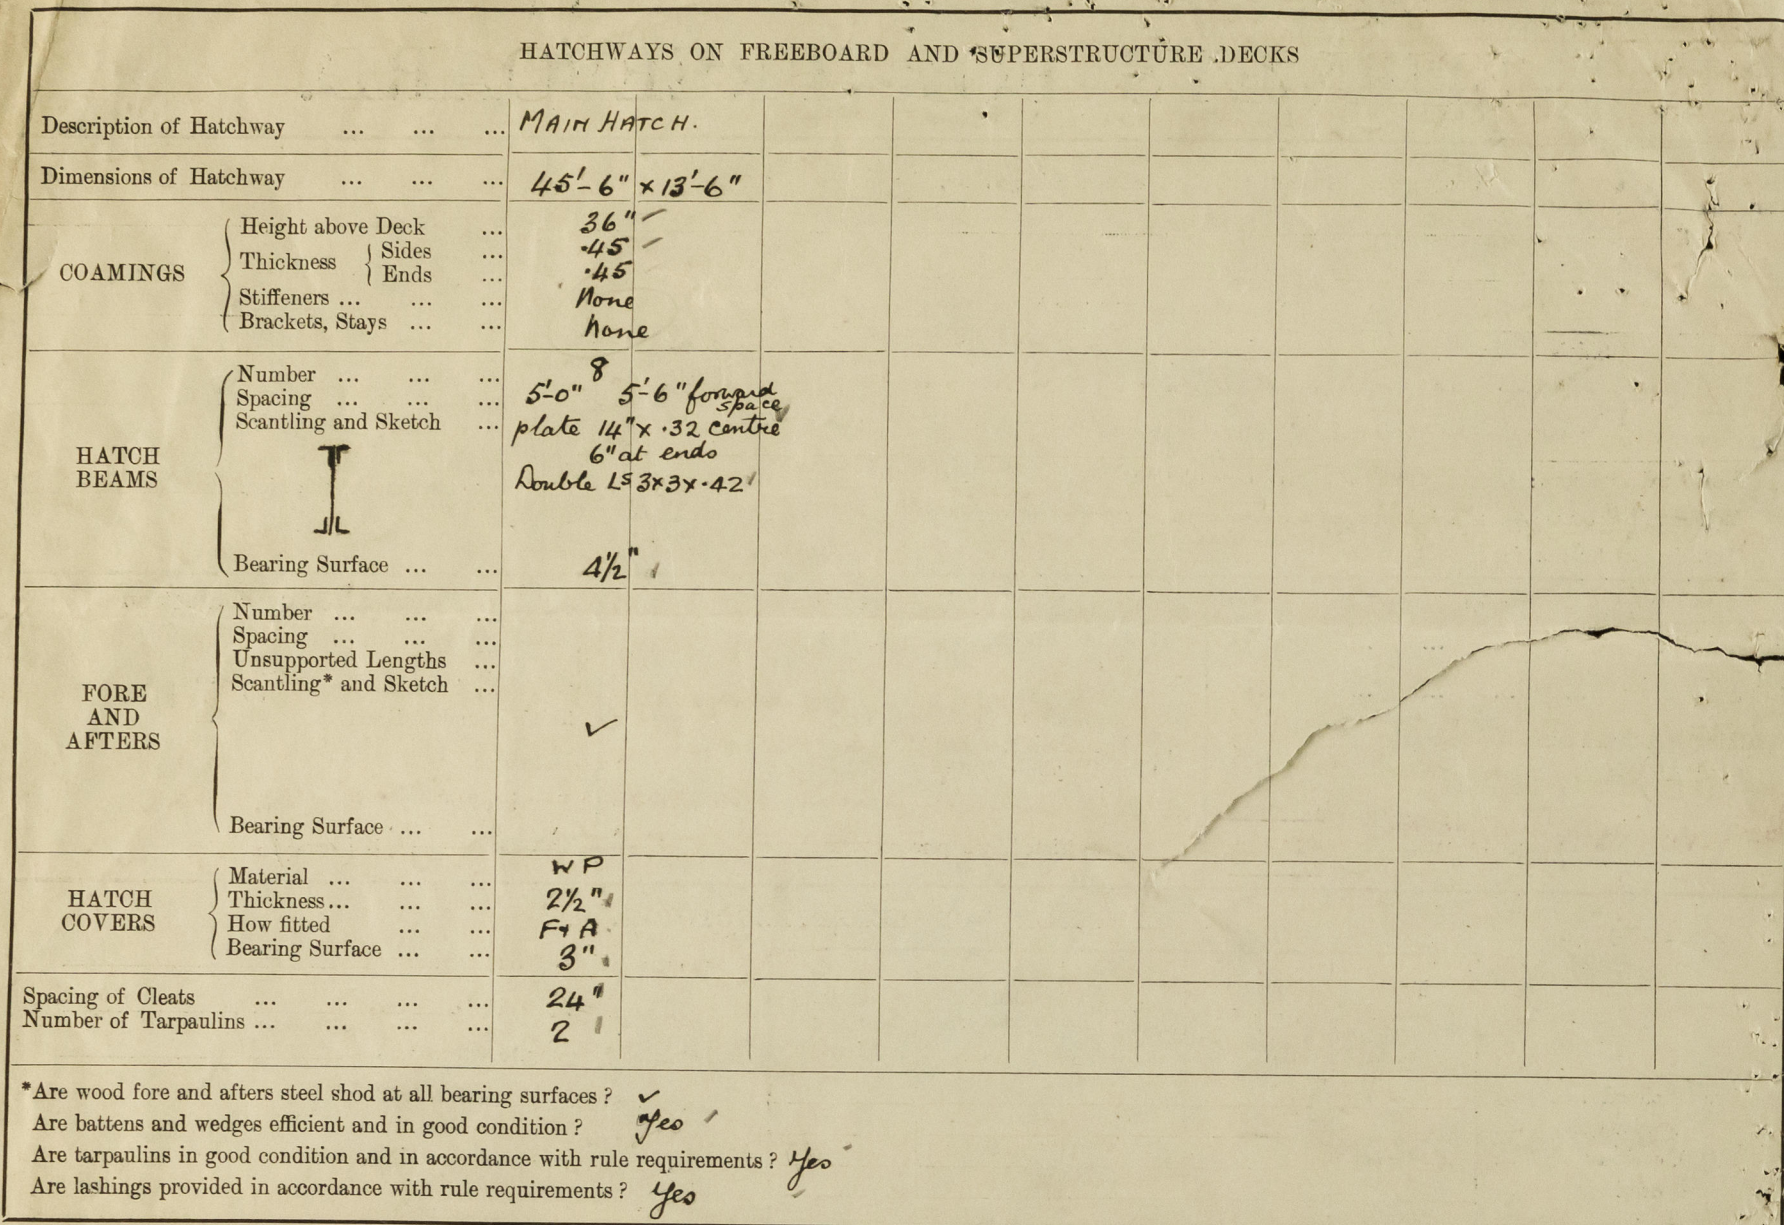 HATCHWAYS ON FREEBOARD AND SUPERSTRUCTURE DECKS
Description of Hatchway ... ... ... MAIN HATCH.
Dimensions of Hatchway ... ... ... 45'-6" x 13'-6"
COAMINGS
Height above Deck ... 36"
Thickness
Sides ... .45
Ends ... .45
Stiffeners ... ... ... None
Brackets, Stays ... ... None
HATCH BEAMS
Number ... ... ... 8
Spacing ... ... ... 5'-0" 5'-6" forward space
Scantling and Sketch ... plate 14" x .32 centre
6" at ends
Double Ls 3x3x.42
Bearing Surface ... ... 4½"
FORE AND AFTERS
Number ... ... ...
Spacing ... ... ...
Unsupported Lengths ...
Scantling* and Sketch ...
✓
Bearing Surface ... ...
HATCH COVERS
Material ... ... ... W P
Thickness ... ... ... 2½"
How fitted ... ... F & A
Bearing Surface ... ... 3"
Spacing of Cleats ... ... ... ... 24"
Number of Tarpaulins ... ... ... ... 2
*Are wood fore and afters steel shod at all bearing surfaces ? ✓
Are battens and wedges efficient and in good condition ? Yes
Are tarpaulins in good condition and in accordance with rule requirements ? Yes
Are lashings provided in accordance with rule requirements ? Yes